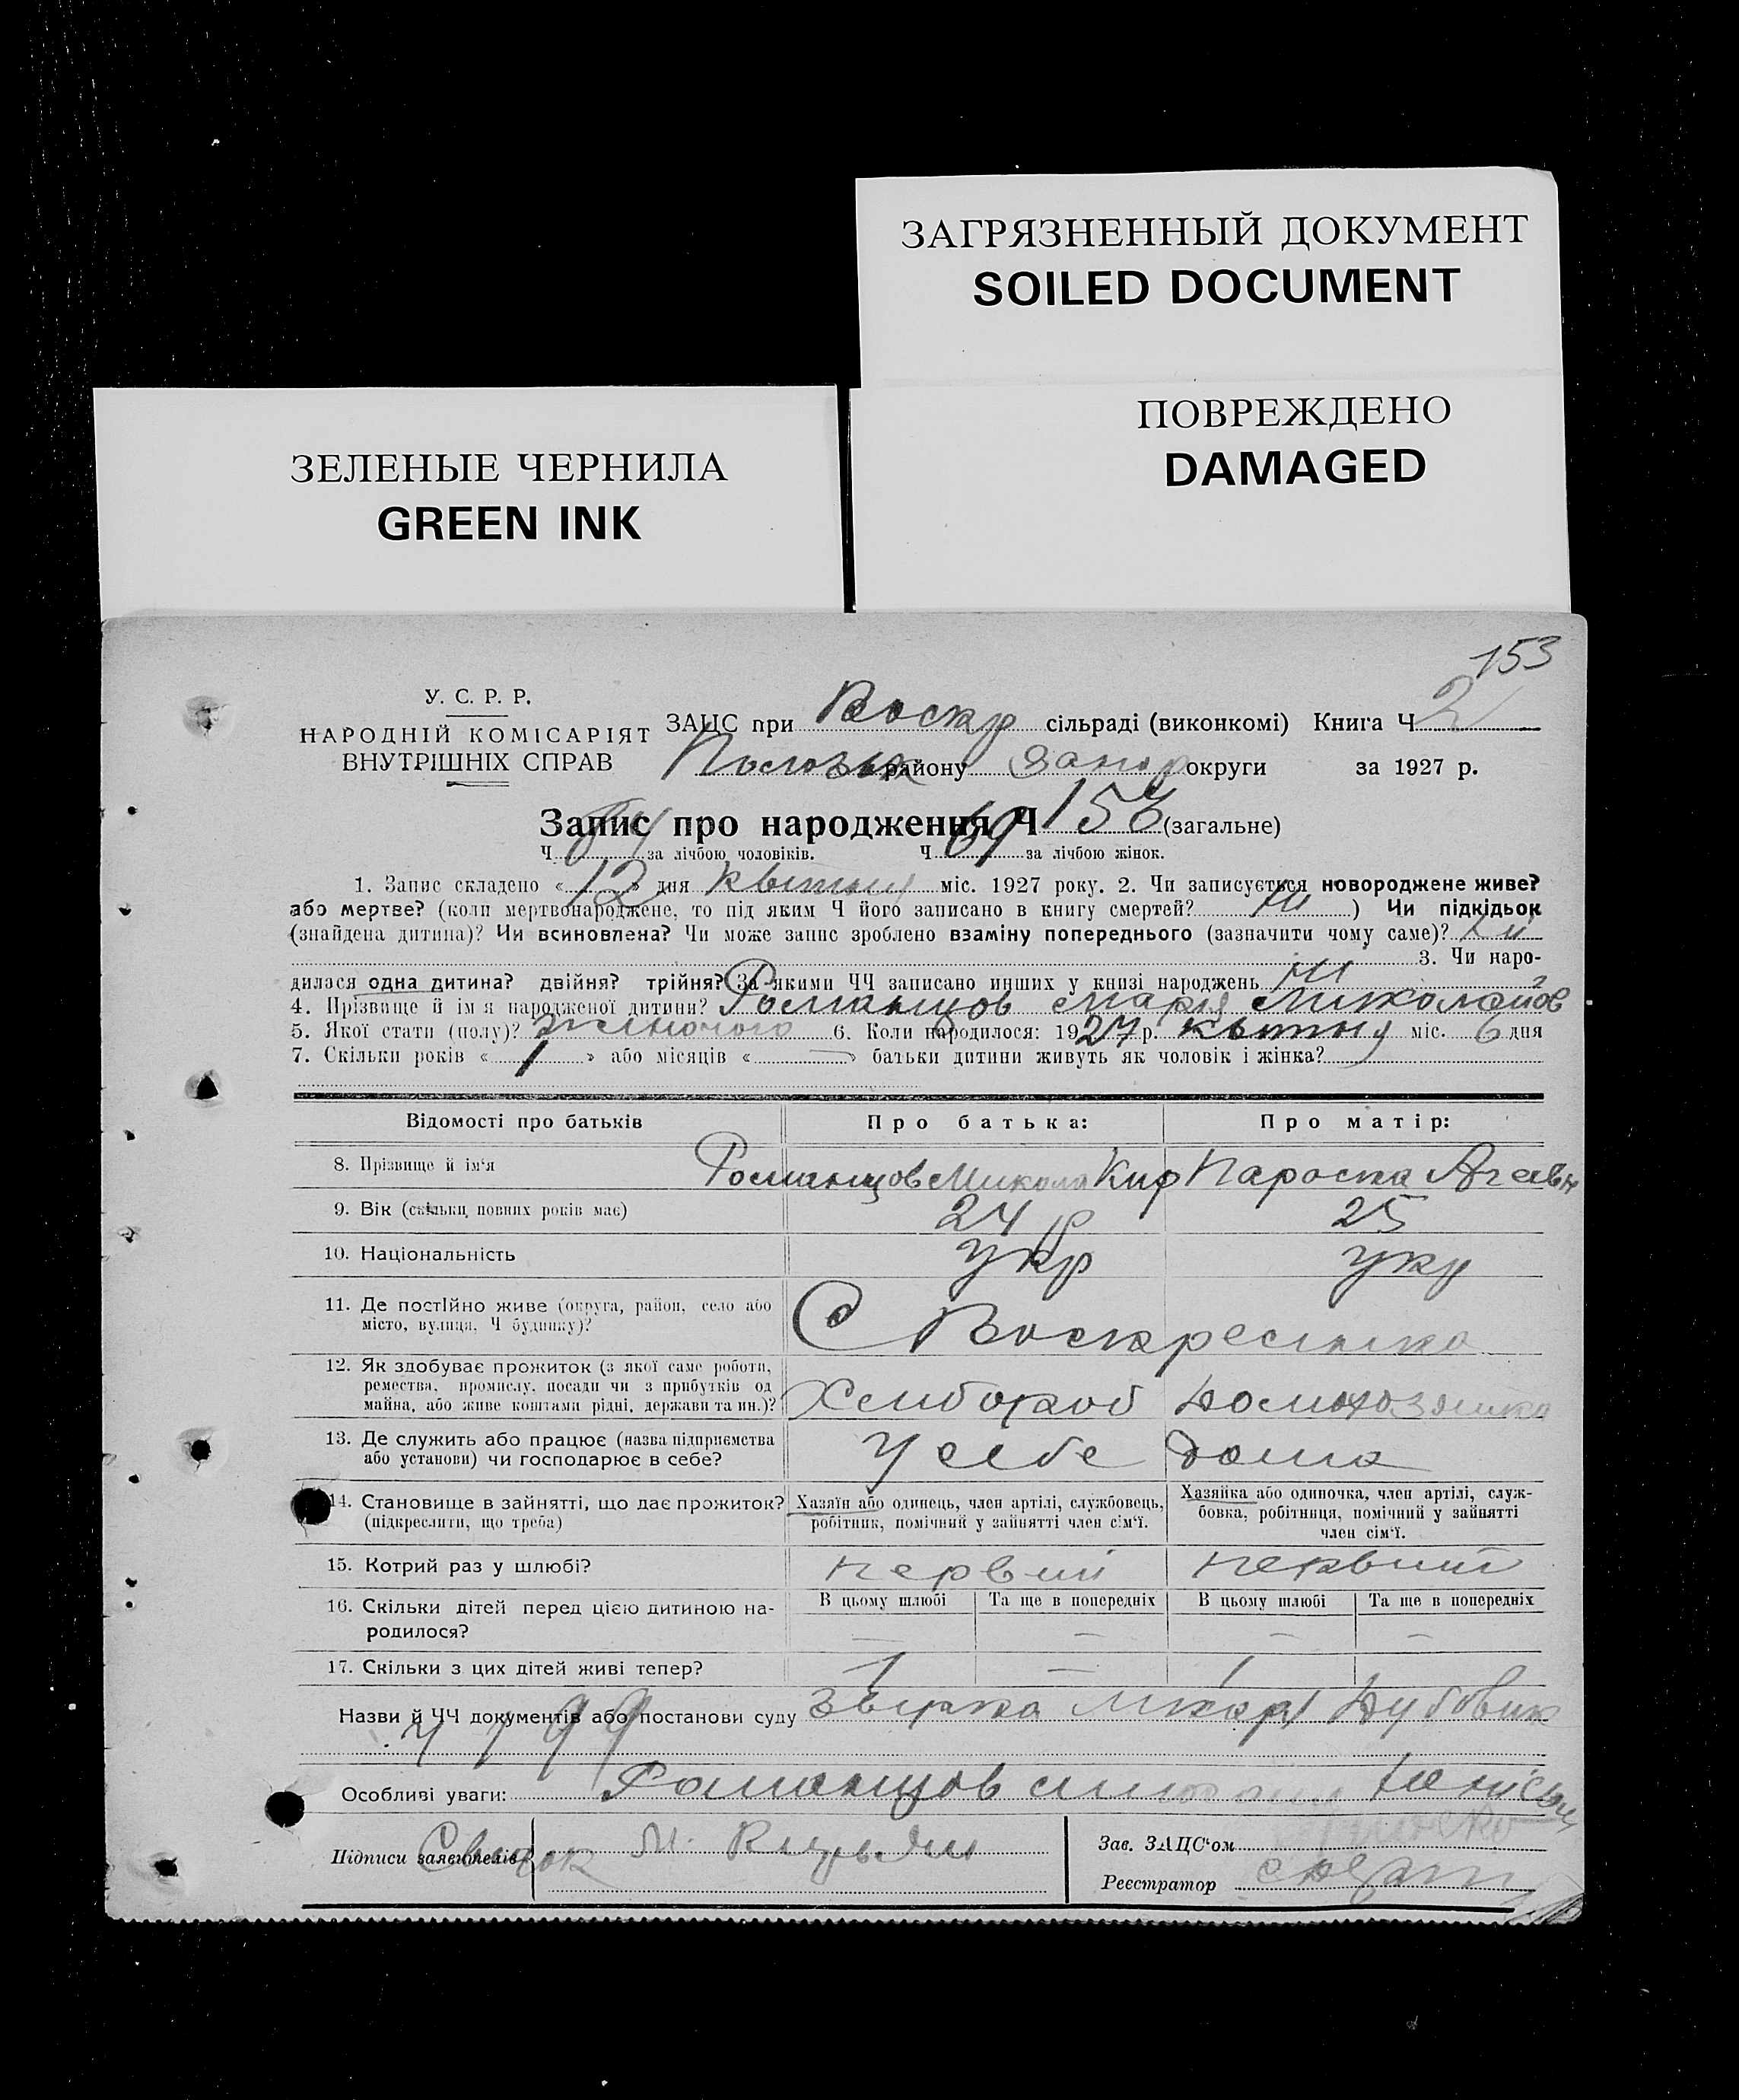 ЗАГРЯЗНЕННЫЙ ДОКУМЕНТ
SOILED DOCUMENT
ПОВРЕЖДЕНО
DAMAGED
ЗЕЛЕНЫЕ ЧЕРНИЛА
GREEN INK
153
У. С. Р. Р.
НАРОДНІЙ КОМІСАРІЯТ
ВНУТРІШНІХ СПРАВ
ЗАЦС при Воскр сільраді (виконкомі) Книга Ч 2
району Запор округи за 1927 р.
Запис про народження Ч 153 (загальне)
Ч 84 за лічбою чоловіків. Ч 69 за лічбою жінок.
1. Запис складено « 12 » дня квітня міс. 1927 року. 2. Чи записується новороджене живе?
або мертве? (коли мертвонароджене, то під яким Ч його записано в книгу смертей? ні ) Чи підкідьок
(знайдена дитина)? Чи всиновлена? Чи може запис зроблено взаміну попереднього (зазначити чому саме)?
3. Чи наро-
дилася одна дитина? двійня? трійня? За якими ЧЧ записано инших у книзі народжень ні
4. Прізвище й ім'я народженої дитини? Романцов Марія Миколайов
5. Якої стати (полу)? жіночого 6. Коли народилося: 1927 р. квітня міс. 6 дня
7. Скільки років « 1 » або місяців « — » батьки дитини живуть як чоловік і жінка?
Відомості про батьків Про батька: Про матір:
8. Прізвище й ім'я Романцов Микола Кир Параска
9. Вік (скільки повних років має) 24 р 25
10. Національність укр укр
11. Де постійно живе (округа, район, село або
місто, вулиця, Ч будинку)? С Воскресенка
12. Як здобуває прожиток (з якої саме роботи,
ремества, промислу, посади чи з прибутків од
майна, або живе коштами рідні, держави та ин.)? Хлибороб домохозяйка
13. Де служить або працює (назва підприємства
або установи) чи господарює в себе? У себе дома
14. Становище в зайнятті, що дає прожиток?
(підкреслити, що треба)
Хазяїн або одинець, член артілі, службовець,
робітник, помічний у зайнятті член сім'ї.
Хазяйка або одиночка, член артілі, служ-
бовка, робітниця, помічний у зайнятті
член сім'ї.
15. Котрий раз у шлюбі? первий первий
16. Скільки дітей перед цією дитиною на-
родилося?
В цьому шлюбі Та ще в попередніх В цьому шлюбі Та ще в попередніх
— — — —
17. Скільки з цих дітей живі тепер? 1 — 1
Назви й ЧЧ документів або постанови суду
Ч 199
Особливі уваги: Романцов
Підписи заявителів Свидок М.
Зав. ЗАЦС'ом
Реєстратор